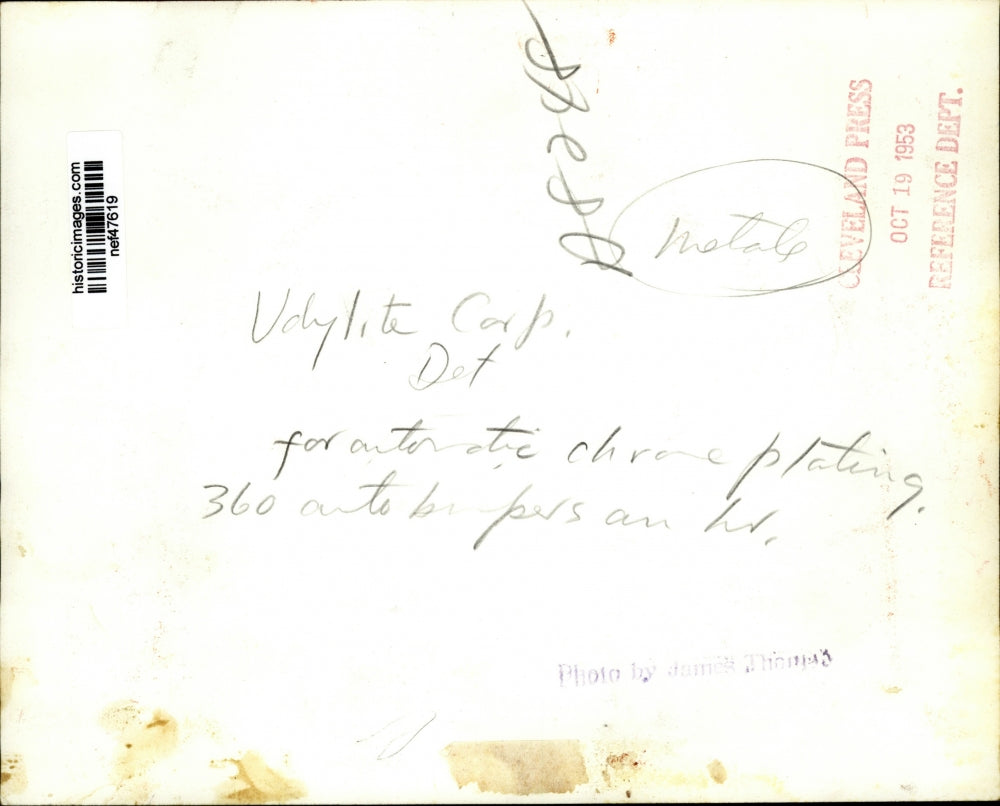 historicimages.com
nef47619
CLEVELAND PRESS
OCT 19 1953
REFERENCE DEPT.
Metals
Udylite Corp.
Det
for automatic chrome plating.
360 auto bumpers an hr.
Photo by James Thomas